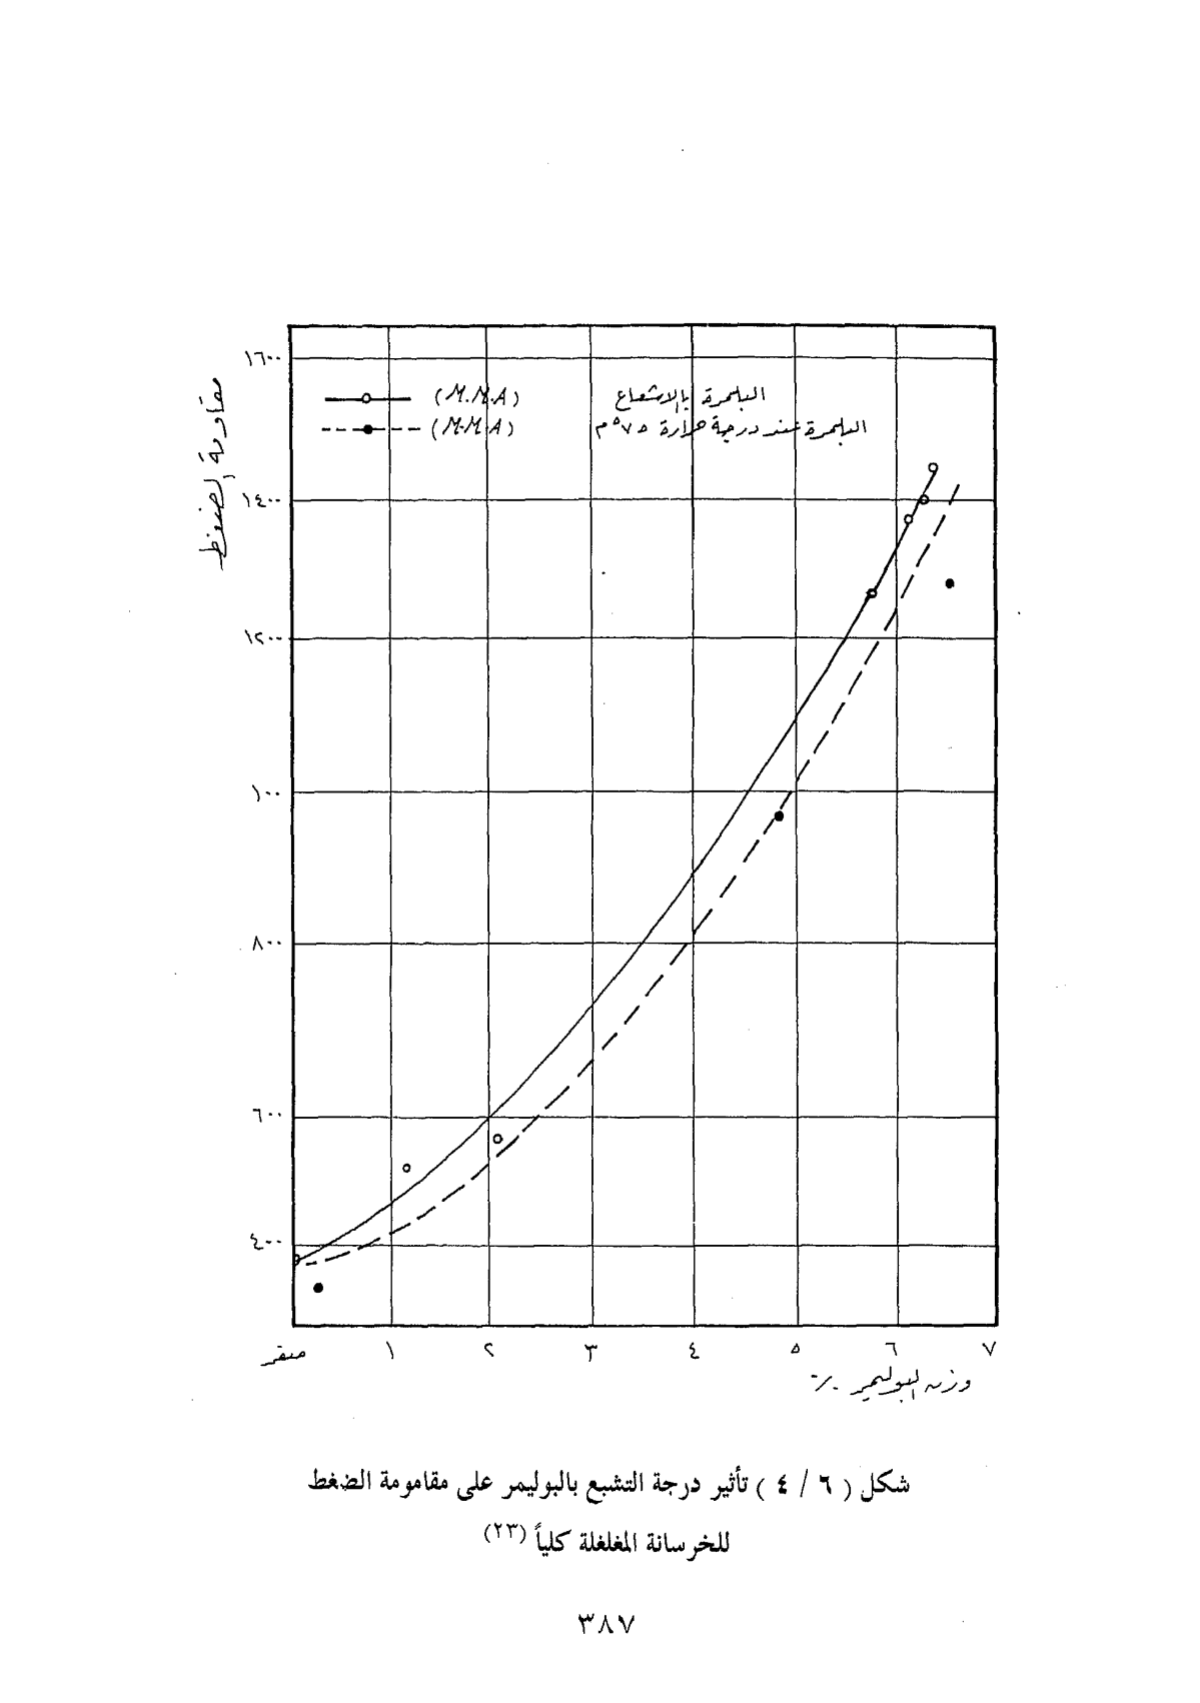 ١٦٠٠
(M.M.A) البلمرة بالاشعاع
(M.M.A) البلمرة عند درجة حرارة ٧٥°م
مقاومة الضغط
١٤٠٠
١٢٠٠
١٠٠
٨٠٠
٦٠٠
٤٠٠
صفر ١ ٢ ٣ ٤ ٥ ٦ ٧
وزن البوليمر ٪
شكل ( ٦ / ٤ ) تأثير درجة التشبع بالبوليمر على مقامومة الضغط
للخرسانة المغلغلة كلياً (٢٣)
٣٨٧